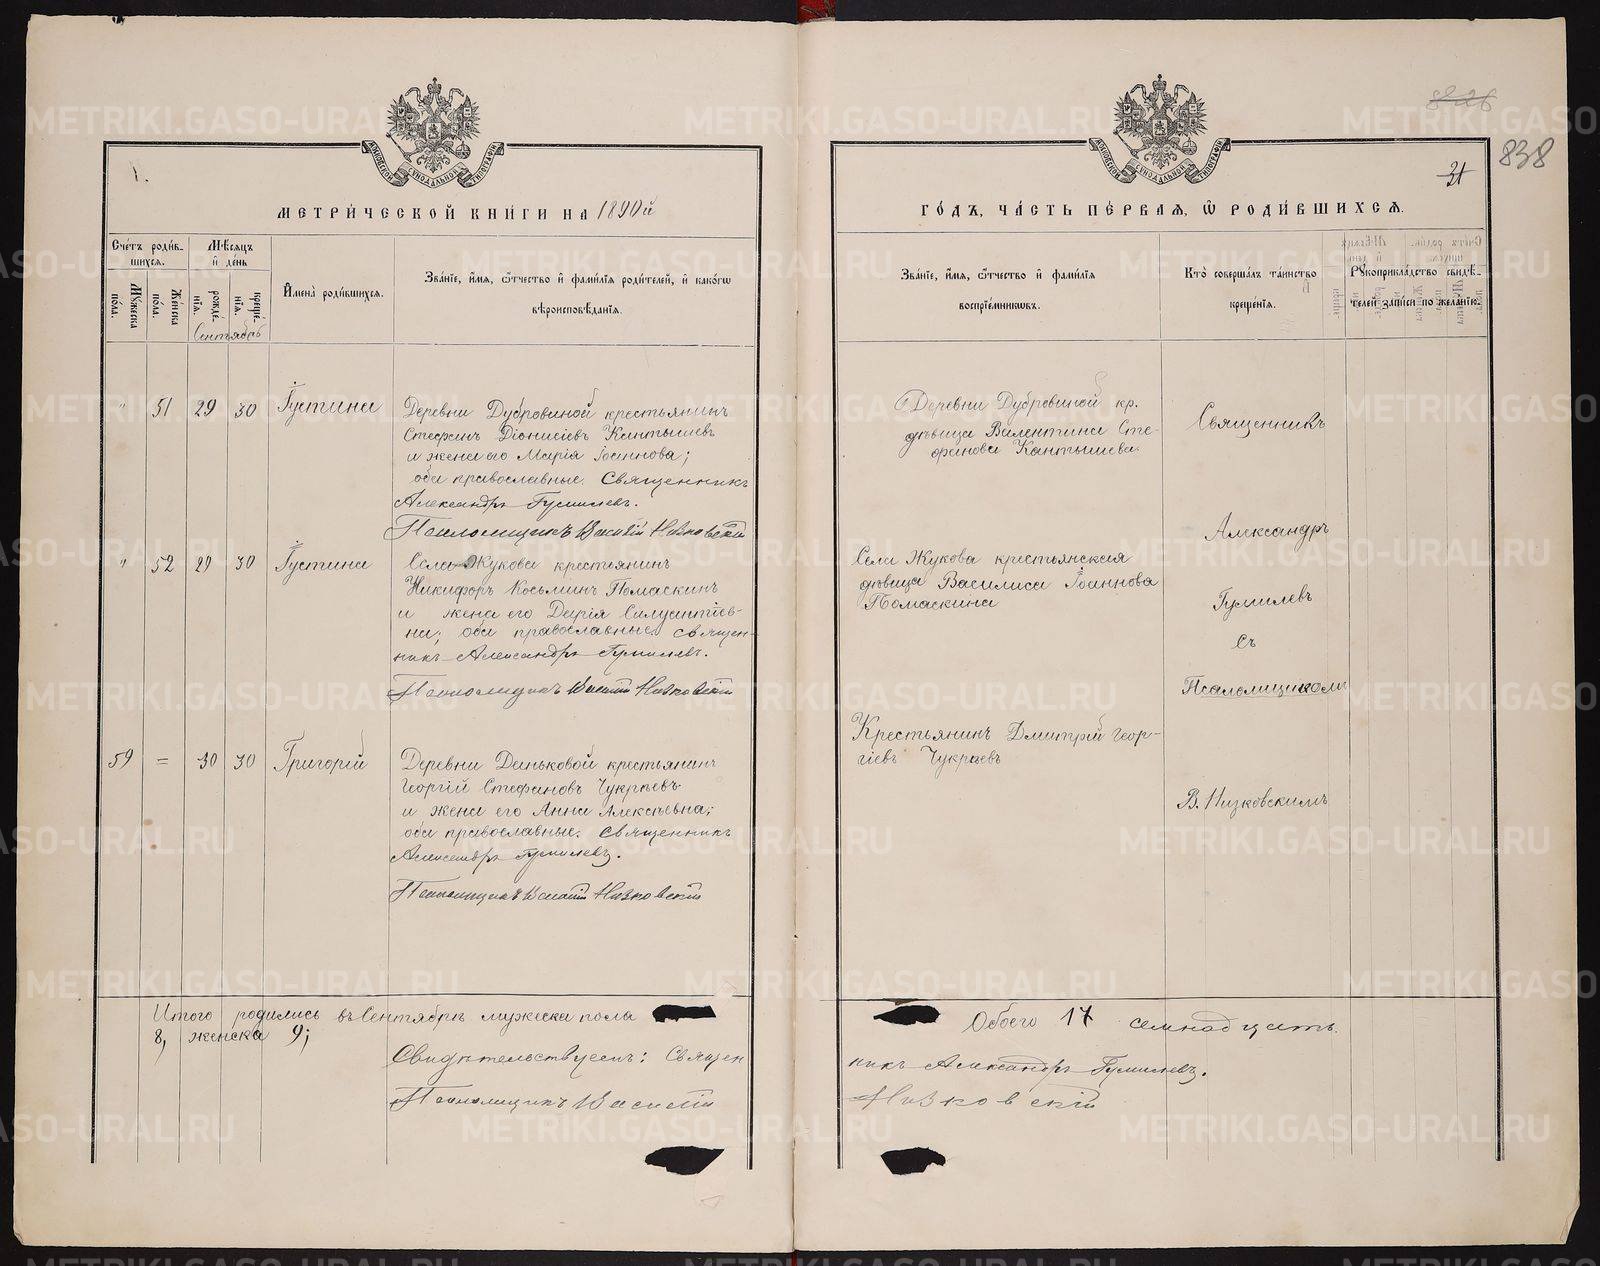 МЕТРИЧЕСКОЙ КНИГИ НА 1890й
Счетъ родив-
шихся.
Мѣсяцъ
и день
Мужеска
пола.
Женска
пола.
рожде-
нія.
креще-
нія.
Имена родившихся.
Званіе, имя, отчество и фамилія родителей, и какогѡ
вѣроисповѣданія.
Сентябрь
" 51 29 30 Іустина
Деревни Дубровиной крестьянинъ
Стефанъ Діонисіевъ Кантышевъ
и жена его Марія Іоаннова;
оба православные. Священникъ
Александръ Гумилевъ.
Псаломщикъ Василій Низковскій
" 52 29 30 Іустина
Села Жукова крестьянинъ
Никифоръ Косьминъ Помаскинъ
и жена его Дарія Силуантіев-
на; оба православные. Священ-
никъ Александръ Гумилевъ.
Псаломщикъ Василій Низковскій
59 = 30 30 Григорій
Деревни Деньковой крестьянинъ
Георгій Стефановъ Чукрѣевъ
и жена его Анна Алексѣевна;
оба православные. Священникъ
Александръ Гумилевъ.
Псаломщикъ Василій Низковскій
Итого родились въ Сентябрѣ мужеска пола
8, женска 9;
Свидѣтельствуемъ: Священ
Псаломщикъ Василій
838
31
ГОДЪ, ЧАСТЬ ПЕРВАЯ, Ѡ РОДИВШИХСЯ.
Званіе, имя, отчество и фамилія
воспріемниковъ.
Кто совершалъ таинство
крещенія.
Рукоприкладство свидѣ-
телей записи по желанію.
Деревни Дубровиной кр.
дѣвица Валентина Сте-
фанова Кантышева
Священникъ
Александръ
Села Жукова крестьянская
дѣвица Василиса Іоаннова
Помаскина
Гумилевъ
съ
Псаломщикомъ
Крестьянинъ Дмитрій Геор-
гіевъ Чукрѣевъ
В. Низковскимъ
Обоего 17 семнадцать.
никъ Александръ Гумилевъ.
Низковскій
METRIKI.GASO-URAL.RU